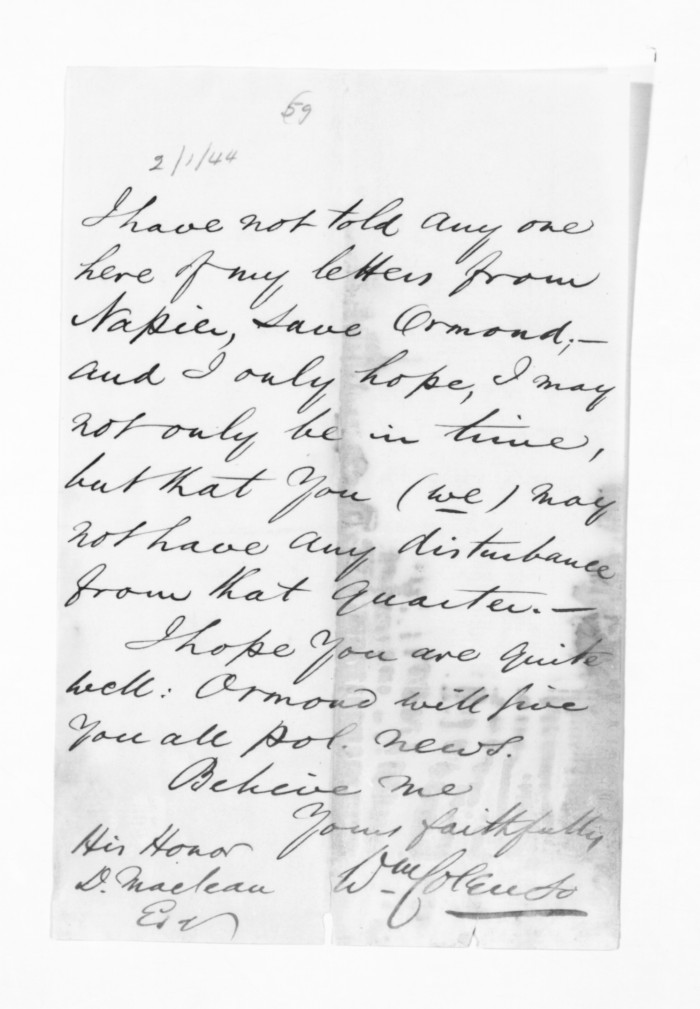 59
2/1/44
I have not told any one
here of my letters from
Napier, save Ormond;—
and I only hope, I may
not only be in time,
but that You (we) may
not have any disturbance
from that quarter.—
I hope You are quite
well: Ormond will give
You all pol. news.
Believe me
Yours faithfully
Wm Colenso
His Honor
D. Maclean
Esqr